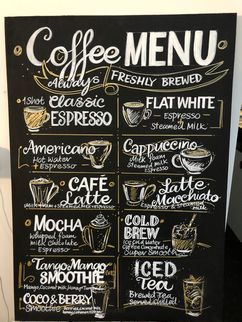 Coffee MENU
Always
FRESHLY BREWED
1 Shot
Classic
ESPRESSO
FLAT WHITE
Espresso
Steamed Milk
Americano
Hot Water
+ Espresso
Cappuccino
Milk Foam
Steamed Milk
Espresso
CAFÉ
Latte
Latte
Macchiato
Espresso & Steamed Milk
MOCHA
Whipped Foam
milk Chocolate
Espresso
COLD
BREW
Ice Cold Water
Super Smooth
Tango Mango
SMOOTHIE
COCO & BERRY
Smoothie
ICED
Tea
Brewed Tea
Served Chilled